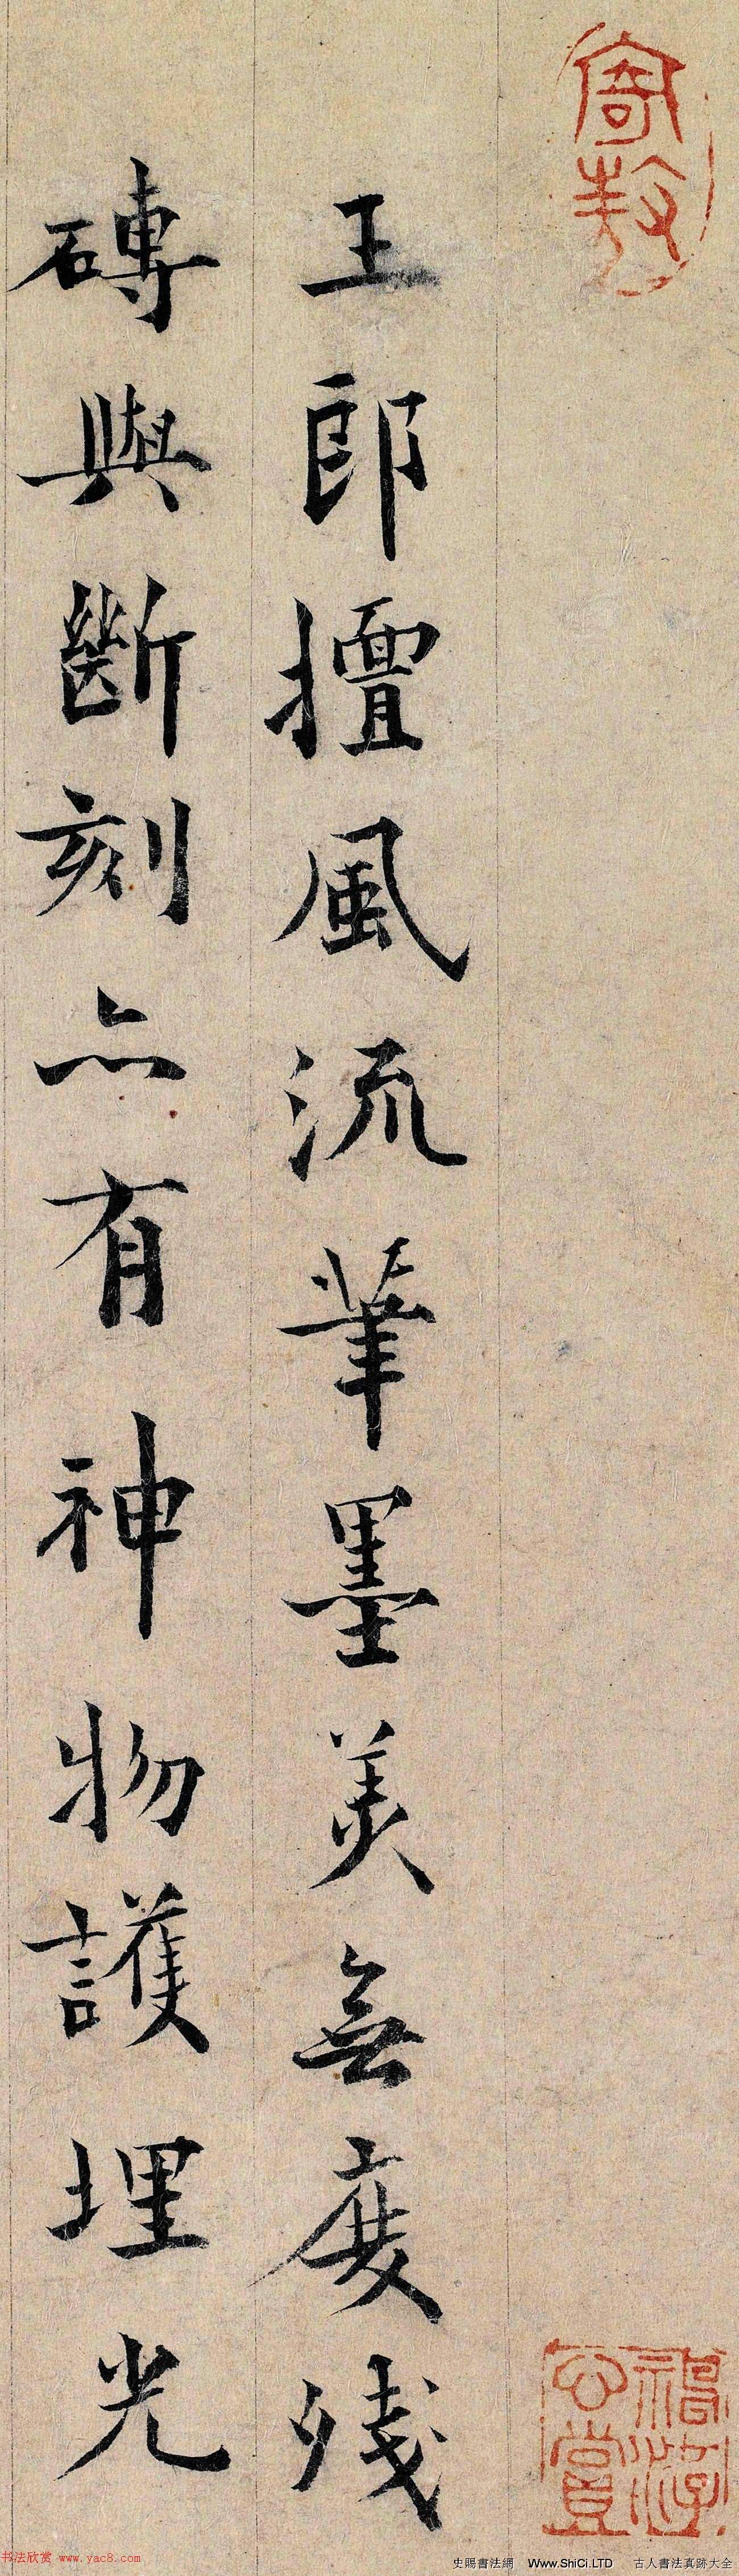 寄敖
王郎擅風流筆墨美無度殘
磚與斷刻亦有神物護埋光
心賞
书法欣赏 www.yac8.com
史賜書法網 Www.ShiCi.LTD 古人書法真跡大全